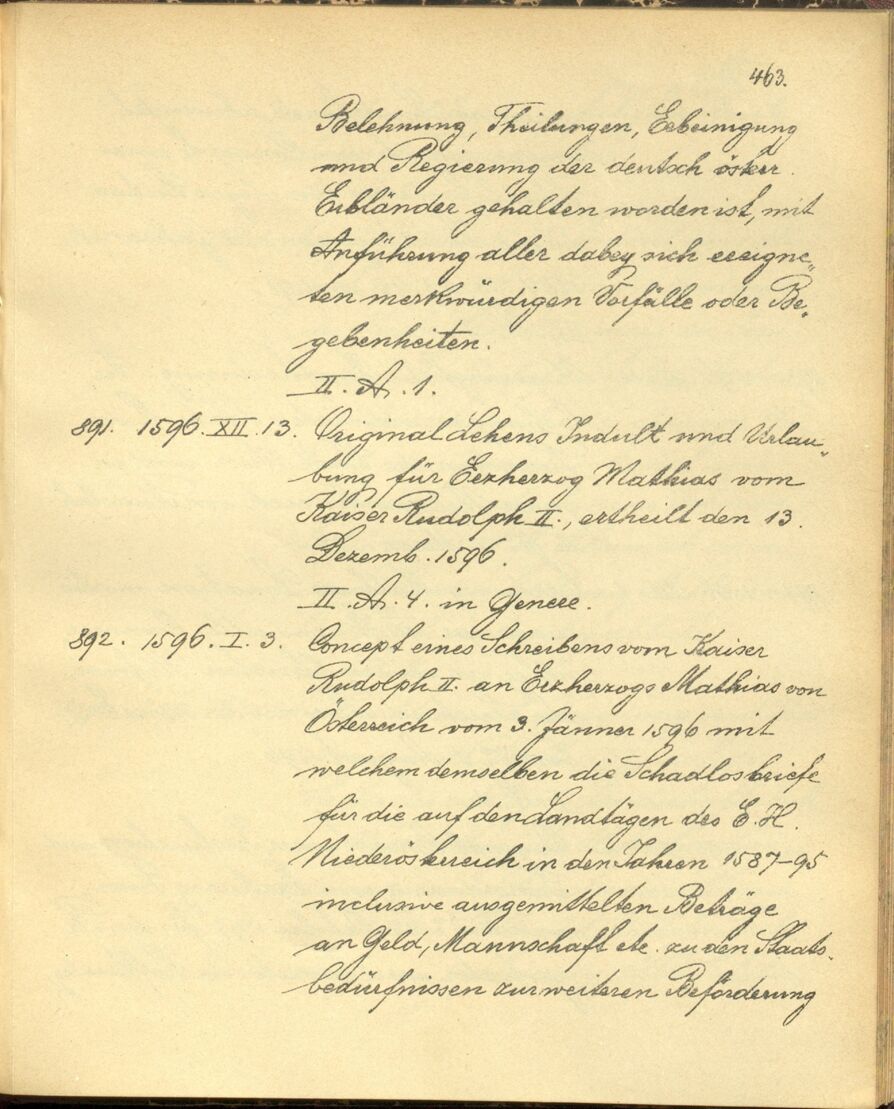 463.
Belehnung, Theilungen, Erbeinigung
und Regierung der deutsch österr.
Erbländer gehalten worden ist, mit
Anführung aller dabey sich ereigne„
ten merkwürdigen Vorfälle oder Be„
gebenheiten.
II. A. 1.
891. 1596. XII. 13. Original Lehens Indult und Urlau„
bung für Erzherzog Mathias vom
Kaiser Rudolph II., ertheilt den 13.
Dezemb. 1596.
II. A. 4. in Genere.
892. 1596. I. 3. Concept eines Schreibens vom Kaiser
Rudolph II. an Erzherzogs Mathias von
Österreich vom 3. Jänner 1596 mit
welchem demselben die Schadlosbriefe
für die auf den Landtägen des E. H.
Niederösterreich in den Jahren 1587-95
inclusive ausgemittelten Beträge
an Geld, Mannschaft etc. zu den Staats-
bedürfnissen zur weiteren Beförderung